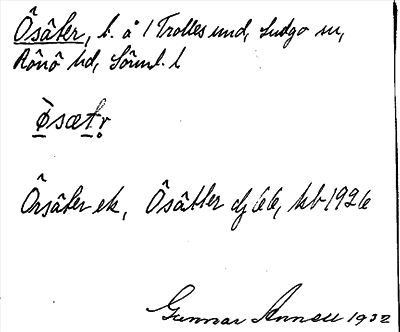 Ôsâter, t. å 1 Trollesund, Ludgo sn,
Rönö hd, Sörml. l
ø̀sætr̥
Ôrsâter ek, Ôsâtter gj 66, kb 1926
Gunnar Annell 1932